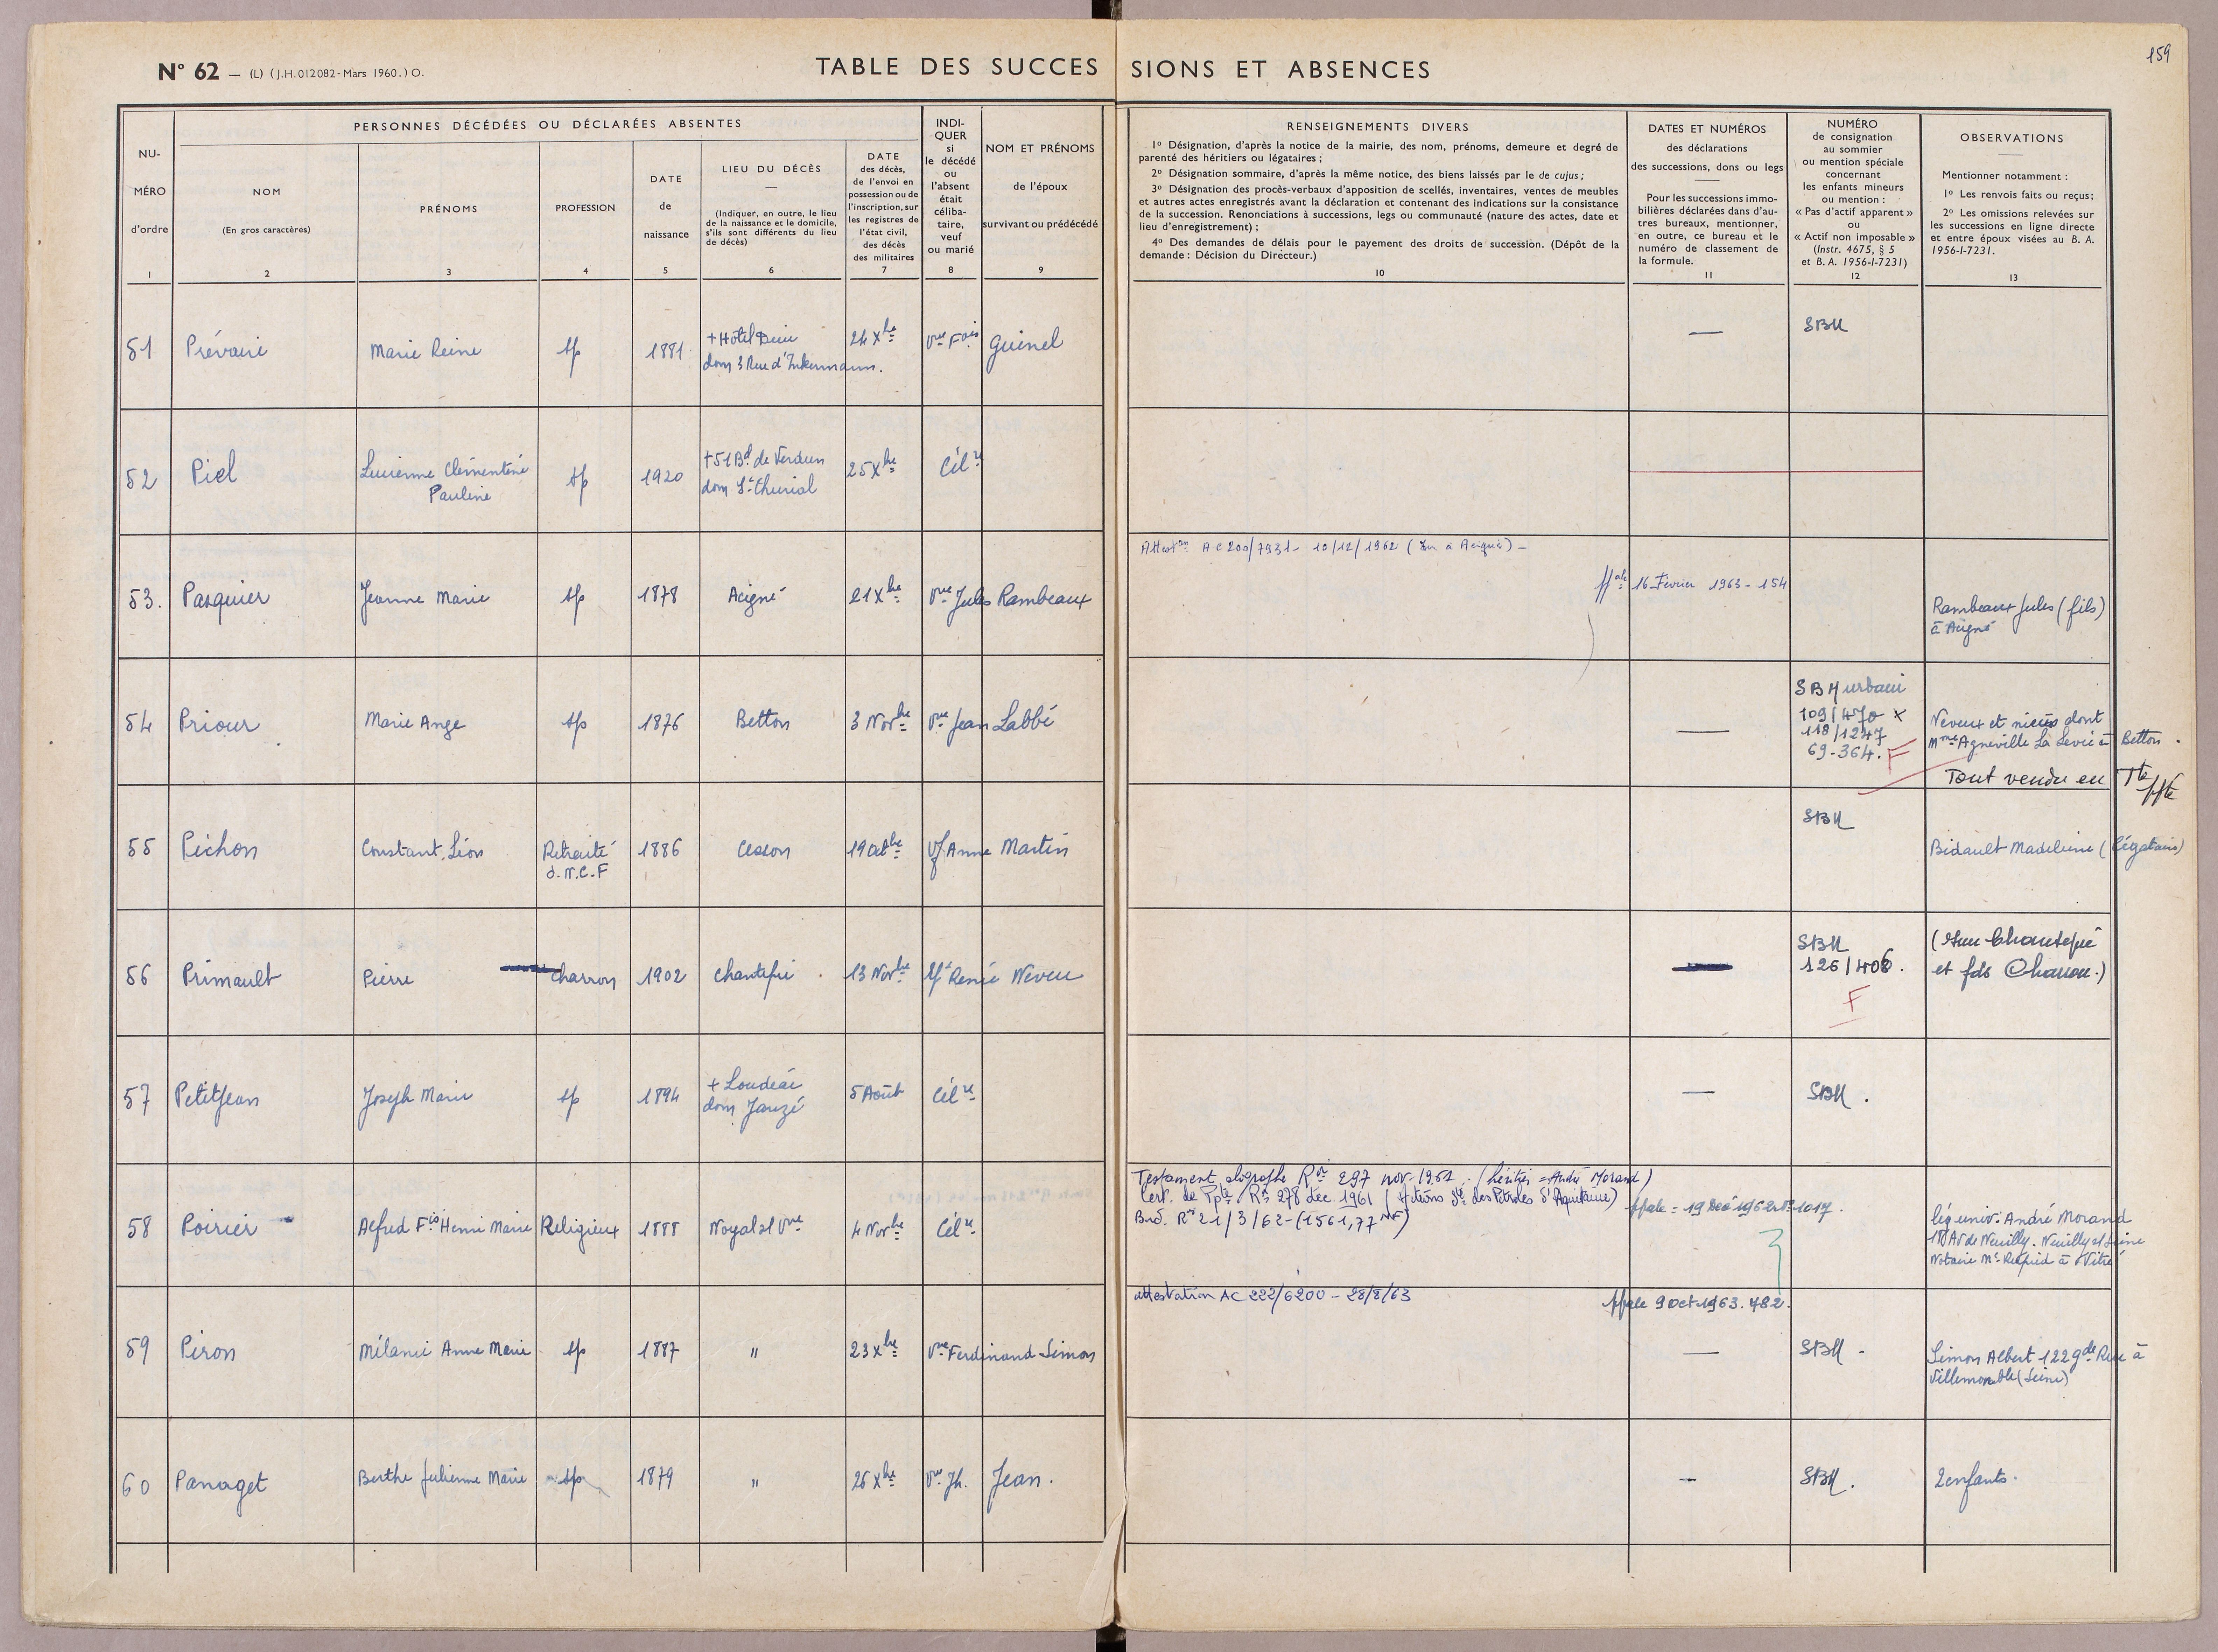 N° 62 — (L) (J.H.012082-Mars 1960.) O.
TABLE DES SUCCESSIONS ET ABSENCES
159
NU-
MÉRO
d'ordre
1
PERSONNES DÉCÉDÉES OU DÉCLARÉES ABSENTES
NOM
(En gros caractères)
2
PRÉNOMS
3
PROFESSION
4
DATE
de
naissance
5
LIEU DU DÉCÈS
(Indiquer, en outre, le lieu
de la naissance et le domicile,
s'ils sont différents du lieu
de décès)
6
DATE
des décès,
de l'envoi en
possession ou de
l'inscription, sur
les registres de
l'état civil,
des décès
des militaires
7
INDI-
QUER
si
le décédé
ou
l'absent
était
céliba-
taire,
veuf
ou marié
8
NOM ET PRÉNOMS
de l'époux
survivant ou prédécédé
9
RENSEIGNEMENTS DIVERS
1° Désignation, d'après la notice de la mairie, des nom, prénoms, demeure et degré de
parenté des héritiers ou légataires ;
2° Désignation sommaire, d'après la même notice, des biens laissés par le de cujus ;
3° Désignation des procès-verbaux d'apposition de scellés, inventaires, ventes de meubles
et autres actes enregistrés avant la déclaration et contenant des indications sur la consistance
de la succession. Renonciations à successions, legs ou communauté (nature des actes, date et
lieu d'enregistrement) ;
4° Des demandes de délais pour le payement des droits de succession. (Dépôt de la
demande : Décision du Directeur.)
10
DATES ET NUMÉROS
des déclarations
des successions, dons ou legs
Pour les successions immo-
bilières déclarées dans d'au-
tres bureaux, mentionner,
en outre, ce bureau et le
numéro de classement de
la formule.
11
NUMÉRO
de consignation
au sommier
ou mention spéciale
concernant
les enfants mineurs
ou mention :
« Pas d'actif apparent »
ou
« Actif non imposable »
(Instr. 4675, § 5
et B. A. 1956-I-7231)
12
OBSERVATIONS
Mentionner notamment :
1° Les renvois faits ou reçus;
2° Les omissions relevées sur
les successions en ligne directe
et entre époux visées au B. A.
1956-I-7231.
13
51 Prévaire Marie Reine sp 1881 + Hôtel Dieu 24 Xbre Vve Fois Guinel — SBM
dom 3 Rue d'Inkermann.
52 Piel Lucienne Clémentine sp 1920 + 51 Bd de Verdun 25 Xbre Célre
Pauline dom St Thurial
Atteston AC 200/7931 - 10/12/1962
53. Pasquier Jeanne Marie sp 1878 Acigné 21 Xbre Vve Jules Rambeaux ffale 16 Février 1963 - 154 Rambeaux Jules (fils)
à Acigné
54 Priour Marie Ange sp 1876 Betton 3 Novbre Vve Jean Labbé — SBM urbain
109/470 x
118/1247
69-364. F
Neveux et nièces dont
Mme Agneville La Levée à Betton.
Tout vendu en Tte ppté
55 Pichon Constant, Léon Retraité 1886 Cesson 19 Octbre Vf Anne Martin SBM Bidault Madeleine (légataire)
S.N.C.F
56 Primault Pierre Charron 1902 Chantepie 13 Novbre Renée Neveu SBM
126/406.
F
57 Petitjean Joseph Marie sp 1894 + Loudéac 5 Août Célre — SBM.
dom Janzé
Testament olographe Rn 297 nov. 1961. (héritier = André Morand)
Cert. de Ppté Rn 278 Dec. 1961 (Actions Sté des Pétroles d'Aquitaine)
Rn 21/3/62 - (1561,77 NF)
58 Poirier Alfred Fois Henri Marie Religieux 1888 Noyal s/ Vne 4 Novbre Célre ffale = 19 Déc 1962 n° 1017.
lég univ. André Morand
Av de Neuilly. Neuilly s/ Seine
Notaire Me à Vitré
attestation AC 222/6200 - 28/8/63 ffale 9 Oct 1963. 482.
59 Piron Mélanie Anne Marie sp 1887 " 23 Xbre Vve Ferdinand Simon — SBM - Simon Albert 122 gde Rue à
Villemomble (Seine)
60 Panaget Berthe Julienne Marie sp 1879 " 26 Xbre Vve Jh. Jean. — SBM. 2 enfants.